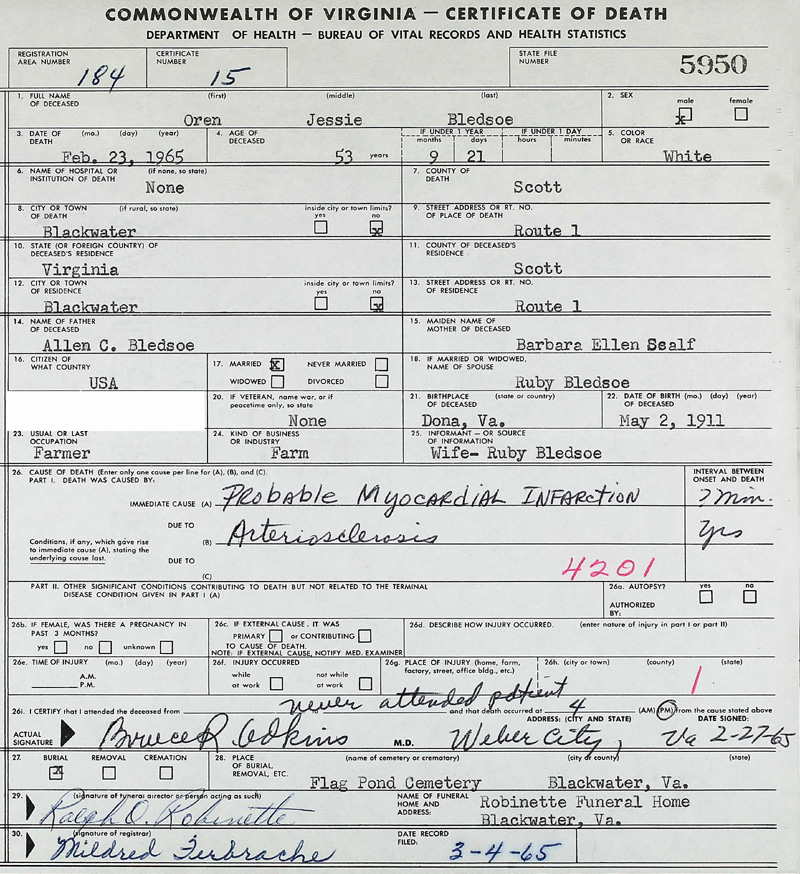 COMMONWEALTH OF VIRGINIA — CERTIFICATE OF DEATH
DEPARTMENT OF HEALTH — BUREAU OF VITAL RECORDS AND HEALTH STATISTICS
REGISTRATION AREA NUMBER 184 CERTIFICATE NUMBER 15 STATE FILE NUMBER 5950
1. FULL NAME OF DECEASED (first) (middle) (last) 2. SEX male female
Oren Jessie Bledsoe x
3. DATE OF DEATH (mo.) (day) (year) 4. AGE OF DECEASED IF UNDER 1 YEAR months days IF UNDER 1 DAY hours minutes 5. COLOR OR RACE
Feb. 23, 1965 53 years 9 21 White
6. NAME OF HOSPITAL OR INSTITUTION OF DEATH (if none, so state) 7. COUNTY OF DEATH
None Scott
8. CITY OR TOWN OF DEATH (if rural, so state) inside city or town limits? yes no 9. STREET ADDRESS OR RT. NO. OF PLACE OF DEATH
Blackwater x Route 1
10. STATE (OR FOREIGN COUNTRY) OF DECEASED'S RESIDENCE 11. COUNTY OF DECEASED'S RESIDENCE
Virginia Scott
12. CITY OR TOWN OF RESIDENCE inside city or town limits? yes no 13. STREET ADDRESS OR RT. NO. OF RESIDENCE
Blackwater x Route 1
14. NAME OF FATHER OF DECEASED 15. MAIDEN NAME OF MOTHER OF DECEASED
Allen C. Bledsoe Barbara Ellen Scalf
16. CITIZEN OF WHAT COUNTRY 17. MARRIED x NEVER MARRIED WIDOWED DIVORCED 18. IF MARRIED OR WIDOWED, NAME OF SPOUSE
USA Ruby Bledsoe
20. IF VETERAN, name war, or if peacetime only, so state 21. BIRTHPLACE OF DECEASED (state or country) 22. DATE OF BIRTH (mo.) (day) (year) OF DECEASED
None Dona, Va. May 2, 1911
23. USUAL OR LAST OCCUPATION 24. KIND OF BUSINESS OR INDUSTRY 25. INFORMANT - OR SOURCE OF INFORMATION
Farmer Farm Wife- Ruby Bledsoe
26. CAUSE OF DEATH (Enter only one cause per line for (A), (B), and (C). INTERVAL BETWEEN ONSET AND DEATH
PART I. DEATH WAS CAUSED BY:
IMMEDIATE CAUSE (A) Probable Myocardial Infarction ? Min.
DUE TO
Conditions, if any, which gave rise to immediate cause (A), stating the underlying cause last. (B) Arteriosclerosis Yrs
DUE TO
(C) 4201
PART II. OTHER SIGNIFICANT CONDITIONS CONTRIBUTING TO DEATH BUT NOT RELATED TO THE TERMINAL DISEASE CONDITION GIVEN IN PART I (A) 26a. AUTOPSY? yes no
AUTHORIZED BY:
26b. IF FEMALE, WAS THERE A PREGNANCY IN PAST 3 MONTHS? yes no unknown
26c. IF EXTERNAL CAUSE, IT WAS PRIMARY or CONTRIBUTING TO CAUSE OF DEATH.
NOTE: IF EXTERNAL CAUSE, NOTIFY MED. EXAMINER
26d. DESCRIBE HOW INJURY OCCURRED. (enter nature of injury in part I or part II)
26e. TIME OF INJURY (mo.) (day) (year) A.M. P.M.
26f. INJURY OCCURRED while at work not while at work
26g. PLACE OF INJURY (home, farm, factory, street, office bldg., etc.)
26h. (city or town) (county) (state)
never attended patient
26i. I CERTIFY that I attended the deceased from and that death occurred at 4 (AM) (PM) from the cause stated above
ADDRESS: (CITY AND STATE) DATE SIGNED:
ACTUAL SIGNATURE Bruce R. Adkins M.D. Weber City, Va 2-27-65
27. BURIAL x REMOVAL CREMATION 28. PLACE OF BURIAL, REMOVAL, ETC. (name of cemetery or crematory) (city or county) (state)
Flag Pond Cemetery Blackwater, Va.
29. (signature of funeral director or person acting as such) NAME OF FUNERAL HOME AND ADDRESS:
Ralph O. Robinette Robinette Funeral Home
Blackwater, Va.
30. (signature of registrar) DATE RECORD FILED:
Mildred Ferbrache 3-4-65